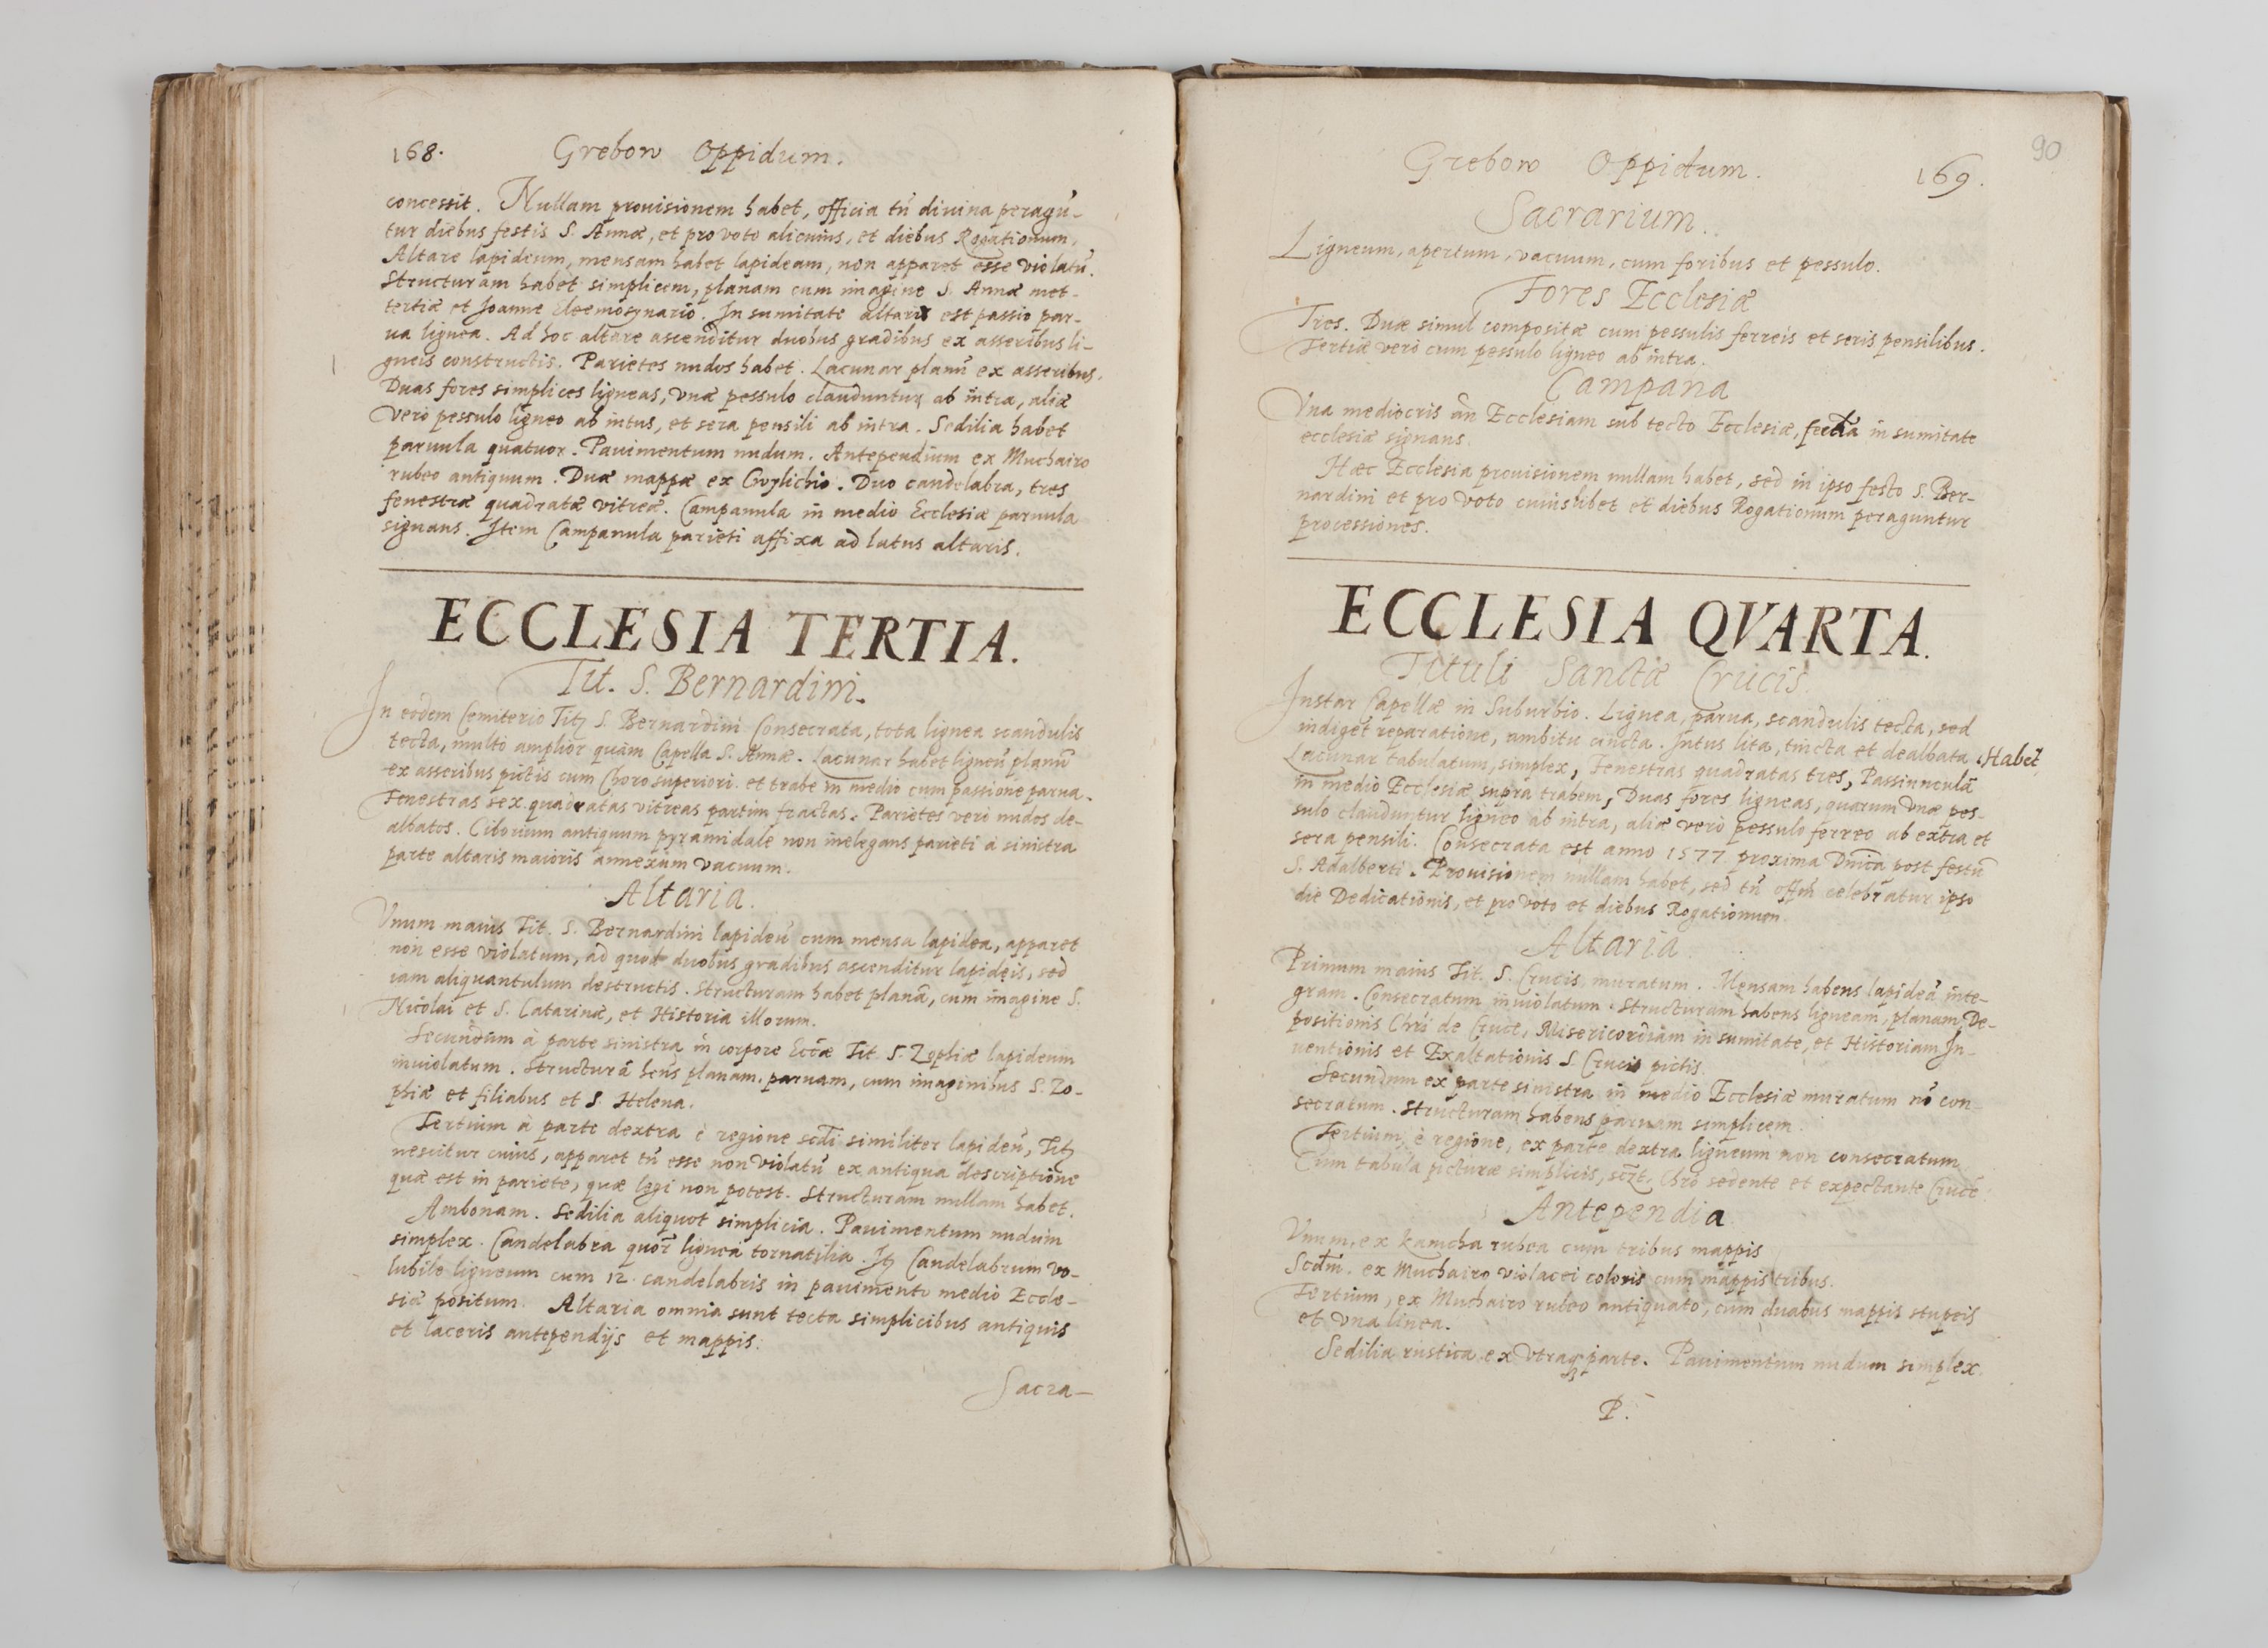 168.
Grebow Oppidum.
concessit. Nullam prouisionem habet, officia tñ diuina peragũ-
tur diebus festis S. Annæ, et pro voto alicuius, et diebus Rogationum.
Altare lapideum, mensam habet lapideam, non apparet esse violatũ.
Structuram habet simplicem, planam cum imagine S. Annæ met-
tertiæ et Joanne Eleemosynario. In sumitate altaris est passio par-
ua lignea. Ad hoc altare ascenditur duobus gradibus ex asseribus li-
gneis constructis. Parietes nudos habet. Lacunar planũ ex asseribus.
Duas fores simplices ligneas, vnæ pessulo clauduntur ab intra, aliæ
vero pessulo ligneo ab intus, et sera pensili ab intra. Sedilia habet
paruula quatuor. Pauimentum nudum. Antependium ex Muchairo
rubeo antiquum. Duæ mappæ ex Gvylichio. Duo candelabra, tres
fenestræ quadratæ vitreæ. Campanula in medio Ecclesiæ paruula
signans. Item Campanula parieti affixa ad latus altaris.
ECCLESIA TERTIA.
Tit. S. Bernardini.
In eodem Cemiterio Titȝ S. Bernardini Consecrata, tota lignea scandulis
tecta, multò amplior quàm Capella S. Annæ. Lacunar habet ligneũ planũ
ex asseribus pictis cum Choro superiori. et trabe in medio cum passione parua.
Fenestras sex quadratas vitreas partim fractas. Parietes verò nudos de-
albatos. Ciborium antiquum pyramidale non inelegans parieti à sinistra
parte altaris maioris annexum vacuum.
Altaria.
Vnum maius Tit. S. Bernardini lapideũ cum mensa lapidea, apparet
non esse violatum, ad quod duobus gradibus ascenditur lapideis, sed
iam aliquantulum destructis. Structuram habet planã, cum imagine S.
Nicolai et S. Catarinæ, et Historia illorum.
Secundum à parte sinistra in corpore Eccæ Tit. S. Zophiæ lapideum
inuiolatum. Structurã hens planam, paruam, cum imaginibus S. Zo-
phiæ et filiabus et S Helena.
Tertium à parte dextra è regione scdi similiter lapideũ, Titȝ
nescitur cuius, apparet tñ esse non violatũ ex antiqua descriptione
quæ est in pariete, quæ legi non potest. Structuram nullam habet.
Ambonam. Sedilia aliquot simplicia. Pauimentum nudum
simplex. Candelabra quor lignea tornatilia. Itȝ Candelabrum vo-
lubile ligneum cum 12. candelabris in pauimento medio Eccle-
siæ positum. Altaria omnia sunt tecta simplicibus antiquis
et laceris antependijs et mappis.
Sacra-
90
Grebow Oppidum.
169.
Sacrarium.
Ligneum, apertum, vacuum, cum foribus et pessulo.
Fores Ecclesiæ
Tres. Duæ simul compositæ cum pessulis ferreis et seris pensilibus.
Tertiæ verò cum pessulo ligneo ab intra.
Campana
Vna mediocris an Ecclesiam sub tecto Ecclesiæ, in sumitate
ecclesiæ signans.
Hæc Ecclesia prouisionem nullam habet, sed in ipso festo S. Ber-
nardini et pro voto cuiuslibet et diebus Rogationum peraguntur
processiones.
ECCLESIA QVARTA.
Tituli Sanctæ Crucis.
Instar Capellæ in Suburbio. Lignea, parua, scandulis tecta, sed
indiget reparatione, ambitu cincta. Intus lita, tincta et dealbata. Habet
Lacunar tabulatum, simplex, Fenestras quadratas tres, Passiunculã
in medio Ecclesiæ supra trabem, Duas fores ligneas, quarum vnæ pes-
sulo clauduntur ligneo ab intra, aliæ verò pessulo ferreo ab extra et
sera pensili. Consecrata est anno 1577 proxima Dnica post festũ
S. Adalberti. Prouisionem nullam habet, sed tñ offm celebratur ipso
die Dedicationis, et pro voto et diebus Rogationum.
Altaria.
Primum maius Tit. S. Crucis muratum. Mensam habens lapideã inte-
gram. Consecratum inuiolatum. Structuram habens ligneam, planam, De-
positionis Chri de Cruce, Misericordiam in sumitate, et Historiam In-
uentionis et Exaltationis S. Crucis pictis.
Secundum ex parte sinistra in medio Ecclesiæ muratum nõ con-
secratum. Structuram habens paruam simplicem.
Tertium, è regione, ex parte dextra ligneum non consecratum
Cum tabula picturæ simplicis, Chro sedente et expectante Crucẽ.
Antependia
Vnum, ex kamcha rubea cum tribus mappis
Scdm. ex Muchairo violacei coloris cum mappis tribus.
Tertium, ex Muchairo rubeo antiquato, cum duabus mappis stupeis
et vna linea.
Sedilia rustica ex vtraqȝ parte. Pauimentum nudum simplex.
P.